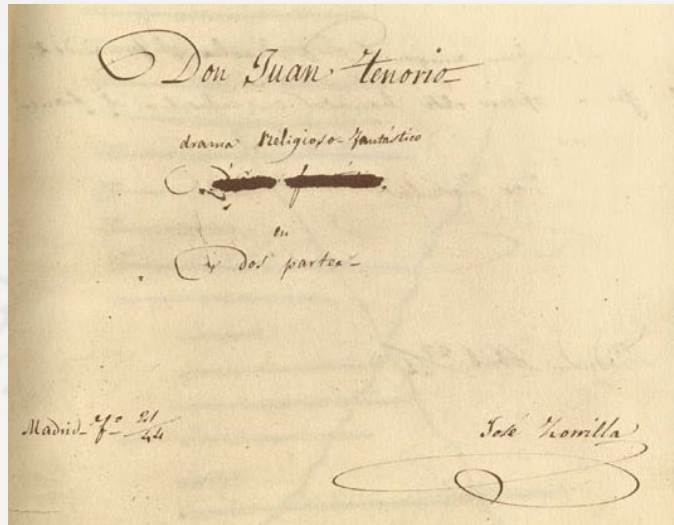 Don Juan Tenorio
drama religioso-fantástico
en
dos partes
Madrid 21/44
José Zorrilla